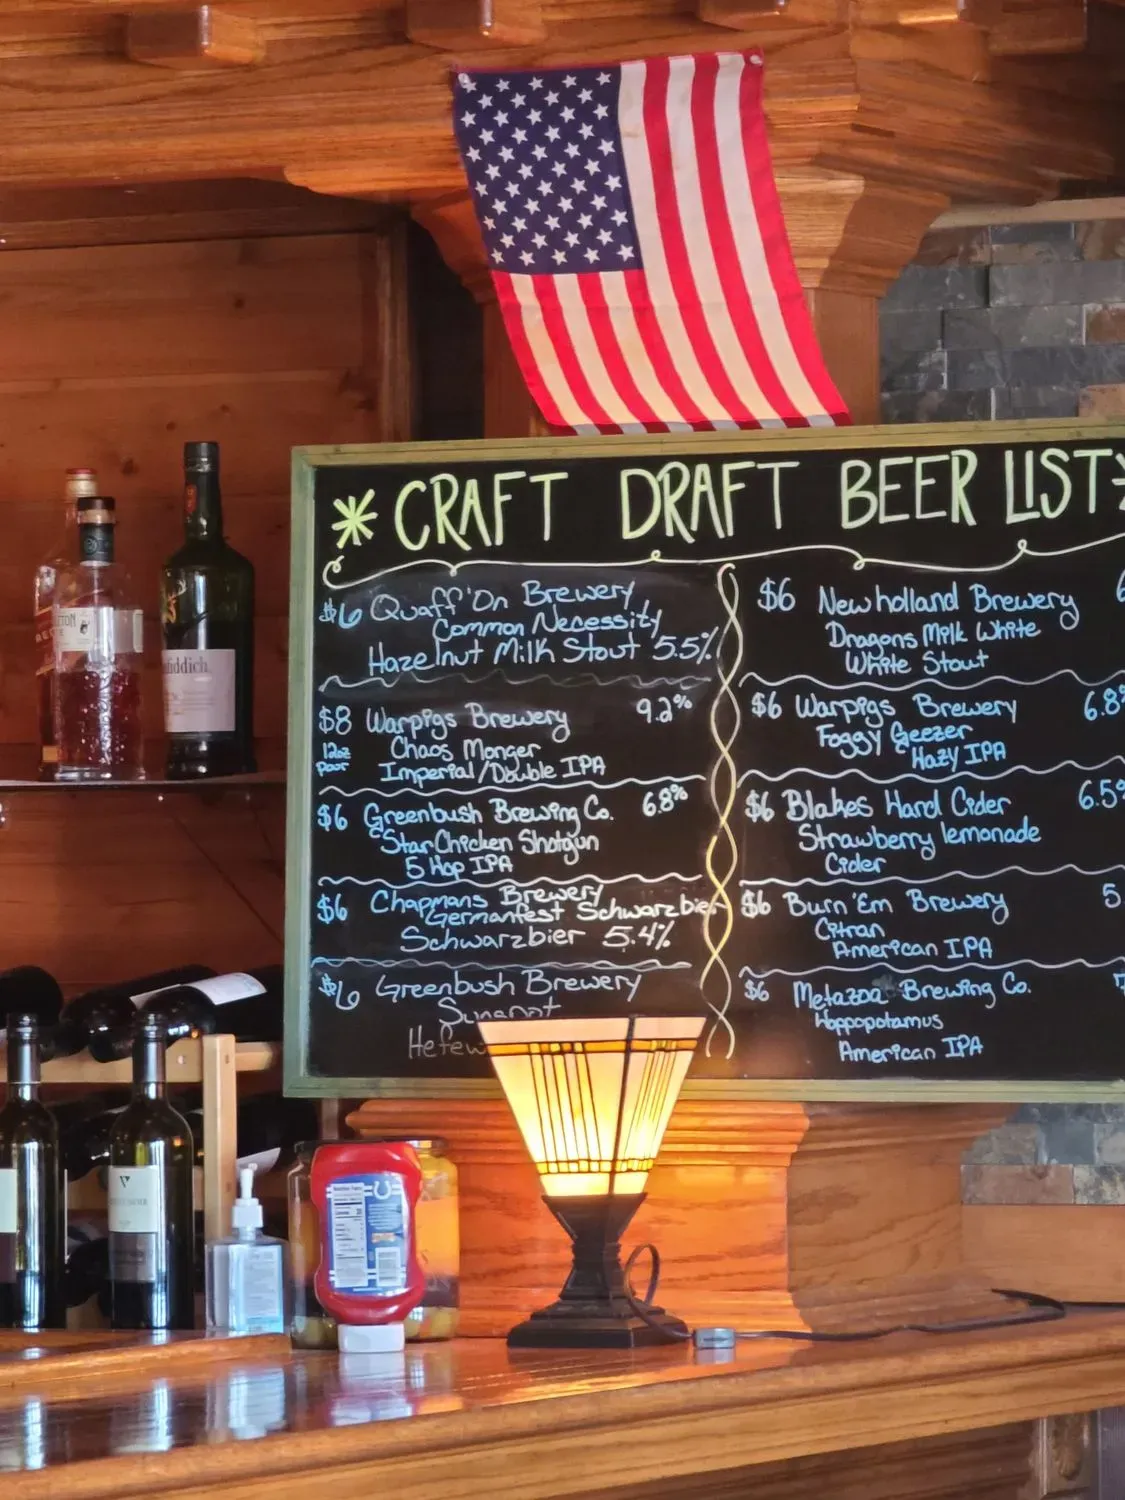 * CRAFT DRAFT BEER LIST
$6 Quaff'On Brewery
Common Necessity
Hazelnut Milk Stout 5.5%
$8 Warpigs Brewery 9.2%
12oz Chaos Monger
pour Imperial/Double IPA
$6 Greenbush Brewing Co. 6.8%
Star Chicken Shotgun
5 Hop IPA
$6 Chapmans Brewery
Germanfest Schwarzbier
Schwarzbier 5.4%
$6 Greenbush Brewery
Hefew
$6 Newholland Brewery 6
Dragons Milk White
White Stout
$6 Warpigs Brewery 6.8%
Foggy Geezer
Hazy IPA
$6 Blakes Hard Cider 6.5%
Strawberry lemonade
Cider
$6 Burn'Em Brewery 5.
Citran
American IPA
$6 Metazoa Brewing Co. 7
Hoppopotamus
American IPA
fiddich